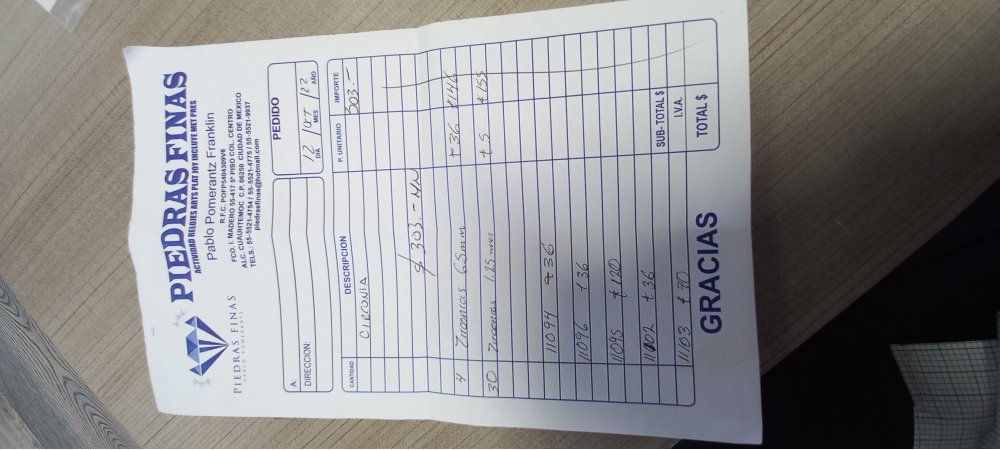 PIEDRAS FINAS
PABLO POMERANTZ
PIEDRAS FINAS
ACTIVIDAD RELOJES ARTS PLAT JOY INCLUYE MET PRES
Pablo Pomerantz Franklin
R.F.C. POFP5404309V6
FCO. I. MADERO 55-417 5° PISO COL. CENTRO
ALC. CUAUHTEMOC C.P. 06250 CIUDAD DE MEXICO
TELS.: 55-5521-4754 / 55-5521-4775 / 55-5521-9937
piedrasfinas@hotmail.com
A:
DIRECCION:
PEDIDO
12 / / 22
DIA MES AÑO
CANTIDAD DESCRIPCION P. UNITARIO IMPORTE
CIRCONIA 303.-
$ 303.- MN
4 Zirconias 6.5mm 36
30 Zirconias 1.25mm 5
11094 36
11096 36
11095 120
36
11103 70
SUB-TOTAL $
I.V.A.
TOTAL $
GRACIAS